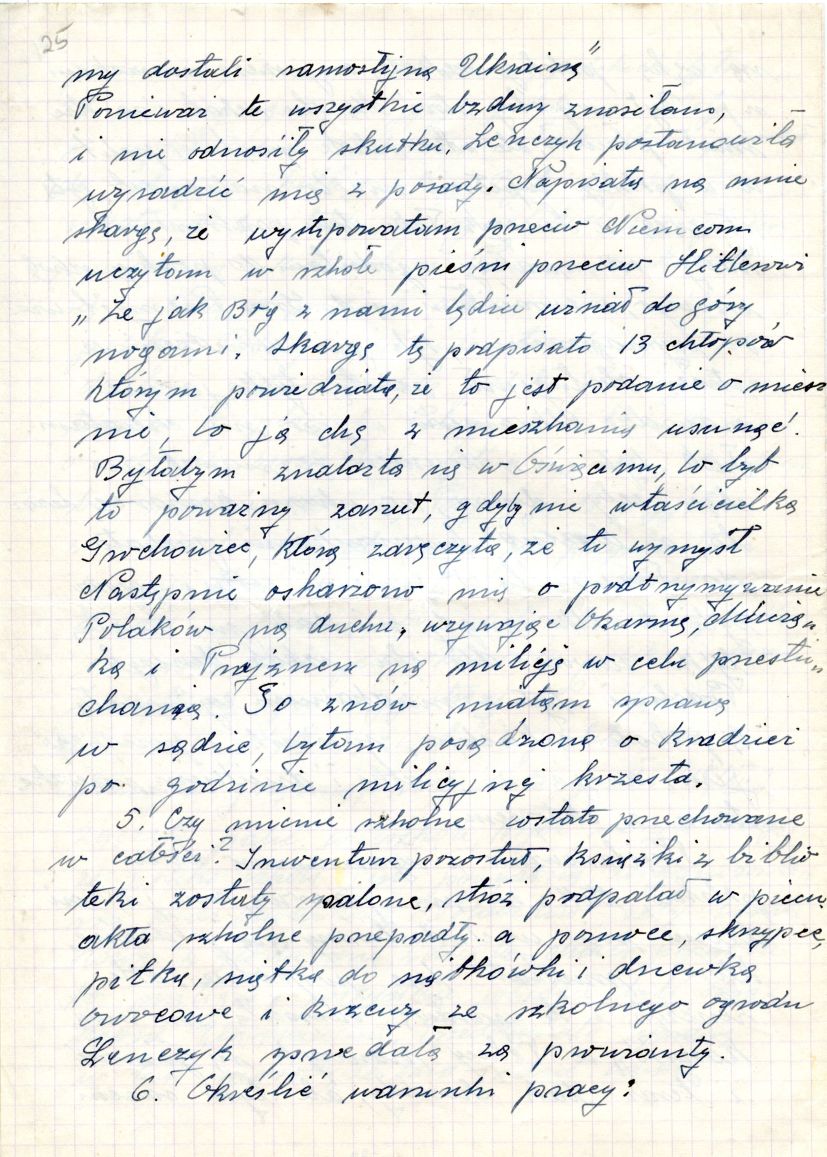 25
my dostali samostijną Ukrainą"
Ponieważ te wszystkie bzdury znosiłam,
i nie odnosiły skutku, Łenczyk postanowiła
wysadzić mię z posady. Napisała na mnie
skargę, że występowałam przeciw Niemcom
uczyłam w szkole pieśni przeciw Hitlerowi
„Że jak Bóg z nami będzie wisiał do góry
nogami. Skargę tę podpisało 13 chłopów
którym powiedziała, że to jest podanie o miesz
nie, bo ją chcą z mieszkania usunąć.
Byłabym znalazła się w Oświęcimu, bo był
to poważny zarzut, gdyby nie właścicielka
Grochowiec, która zaręczyła, że to wymysł
Następnie oskarżono mię o podtrzymywanie
Polaków na duchu, wzywając Okarmę,
ką i Prajznera na milicję w celu przesłu„
chania. Go znów miałam sprawę
w sądzie, byłam posądzona o kradzież
po godzinie milicyjnej krzesła.
5. Czy mienie szkolne zostało przechowane
w całości? Inwentarz pozostał, książki z biblio
teki zostały spalone, stróż podpalał w piecu,
akta szkolne przepadły. a pomoce, skrzypce,
piłka, siatka do siatkówki i drzewka
owocowe i krzewy ze szkolnego ogrodu
Łenczyk sprzedała za prowianty.
6. Określić warunki pracy: